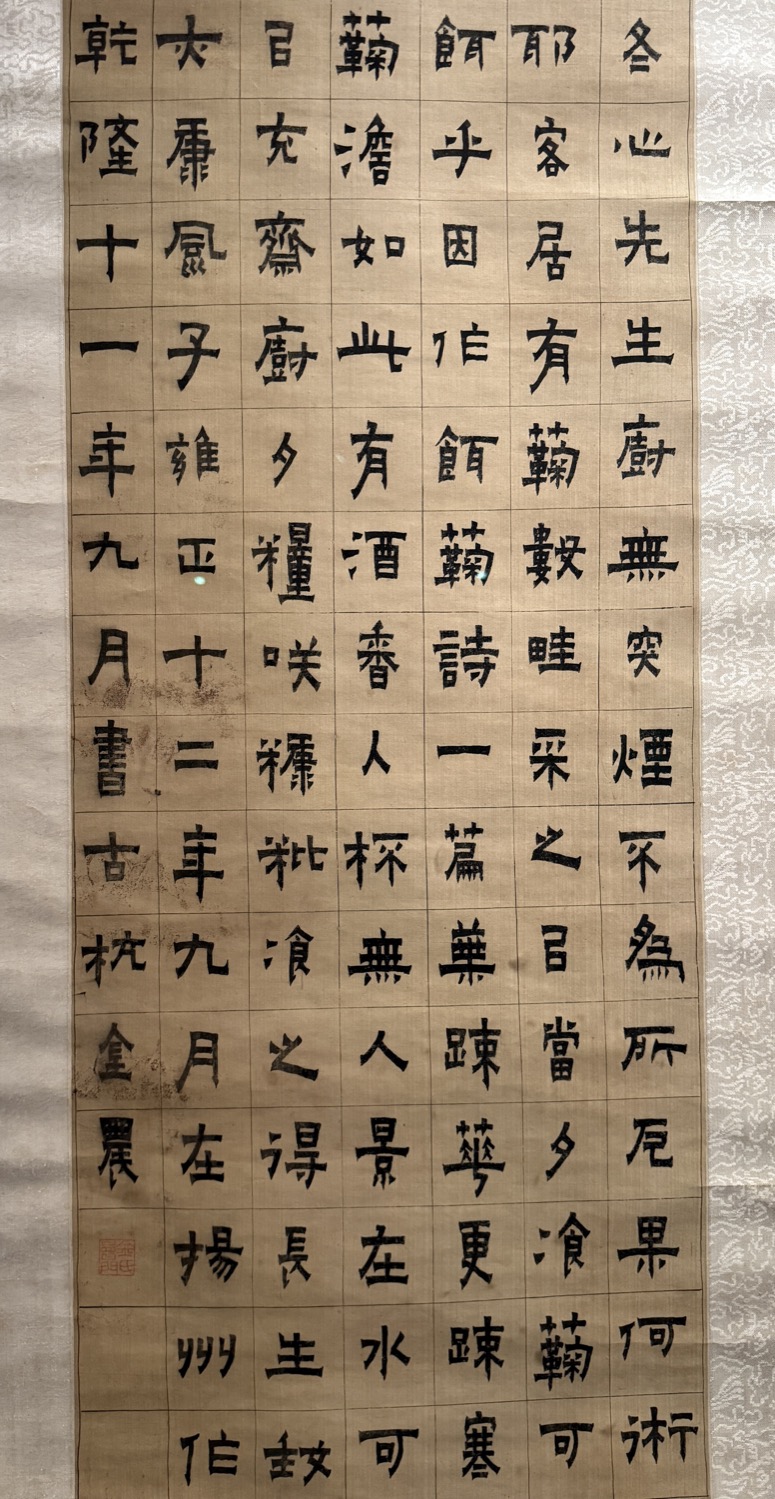 冬心先生廚無突煙不為所厄果何術
耶客居有蘜數畦采之㠯當夕飡蘜可
餌乎因作餌蘜詩一篇葉踈華更踈寒
蘜澹如此有酒香人杯無人景在水可
㠯充齋廚夕糧咲糠粃飡之得長生
大康風子雍正十二年九月在揚州作
乾隆十一年九月書古杭金農